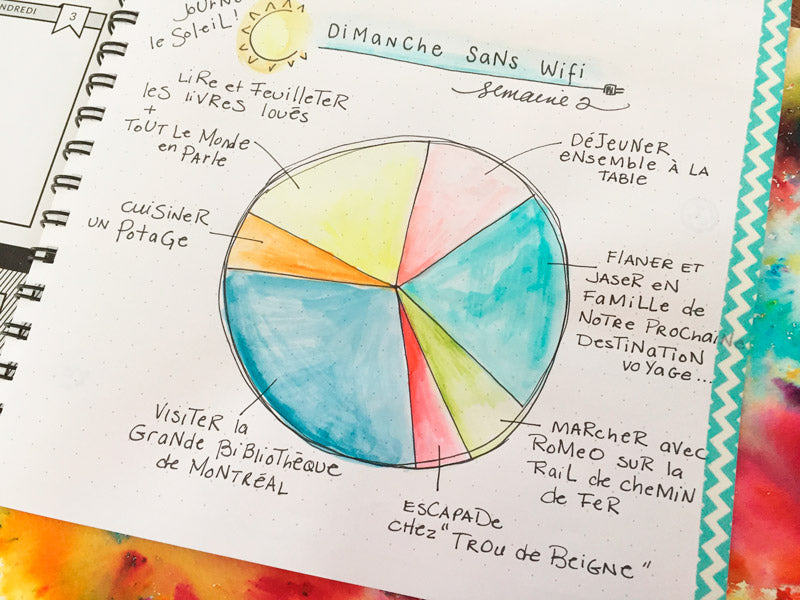 NDREDI
3
JOURNÉ
le Soleil!
DIMANCHE SANS WIFI
semaine 2
LIRE et FEUILLETER
les livres loués
+
TOUT Le Monde
en Parle
DÉJEUNER
ENSEMBLE À LA
TABLE
CUISINER
UN POTAGE
FLANER ET
JASER EN
FAMILLE de
NOTRE PROCHAIN
DESTINATION
VOYAGE...
MARCHER avec
ROMEO SUR la
RAIL de CHEMIN
de FER
VISITER la
GRANDE BIBLIOTHÈQUE
de MONTRÉAL
ESCAPADE
CHEZ "TROU de BEIGNE"